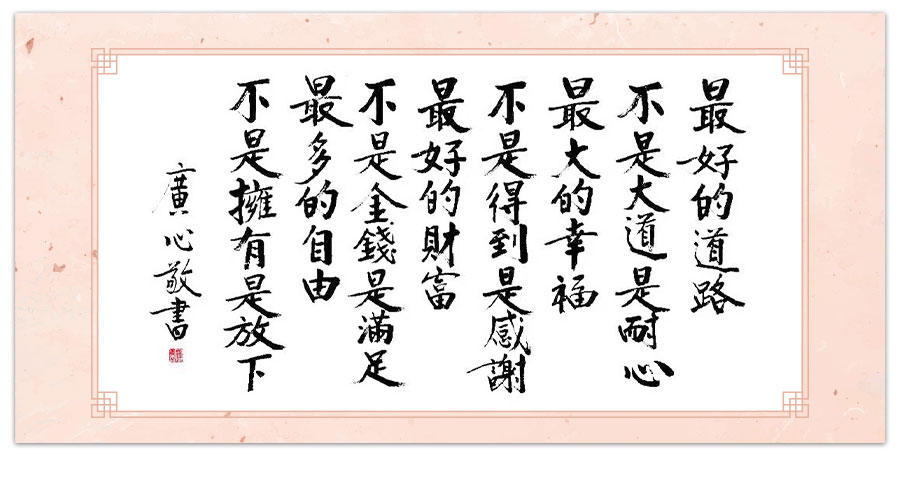 最好的道路
不是大道是耐心
最大的幸福
不是得到是感謝
最好的財富
不是金錢是滿足
最多的自由
不是擁有是放下
廣心敬書